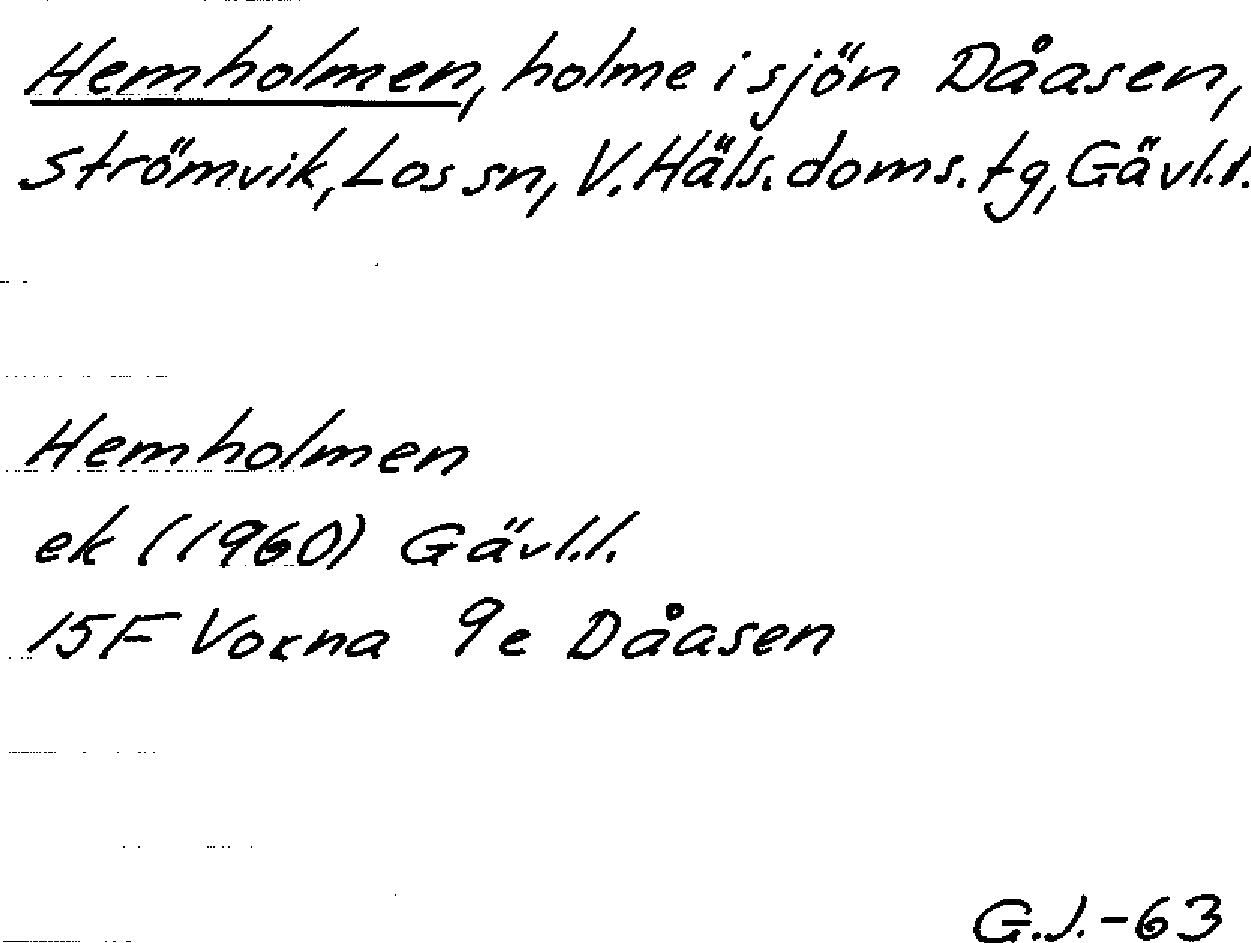 Hemholmen, holme i sjön Dåasen,
Strömvik, Los sn, V. Häls. doms. tg, Gävl.l.
Hemholmen
ek (1960) Gävl.l.
15F Voxna 9e Dåasen
G.J.-63